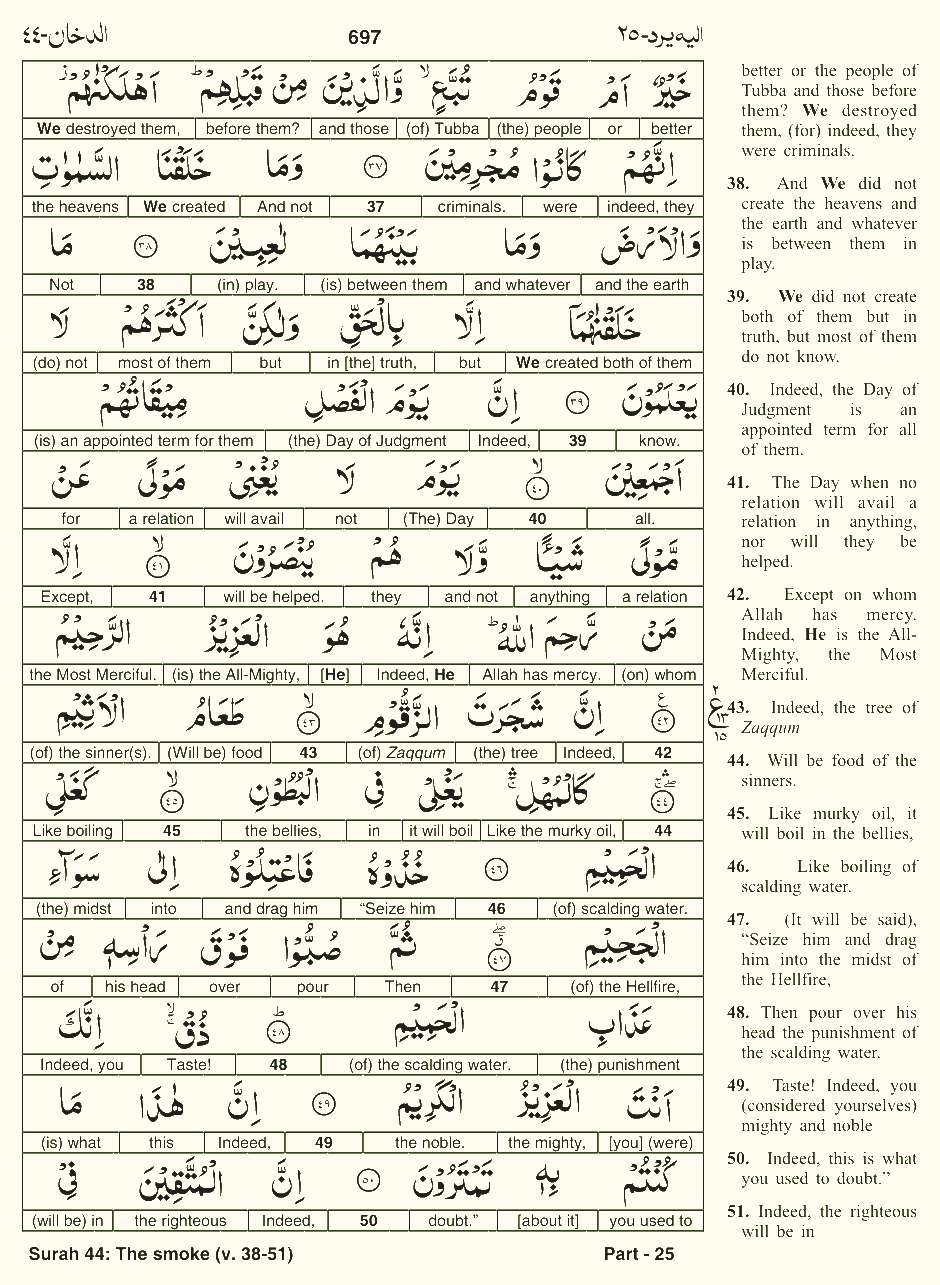 الدخان-٤٤ 697 اليه يرد-٢٥
خَيْرٌ اَمْ قَوْمُ تُبَّعٍ ۙ وَّالَّذِيْنَ مِنْ قَبْلِهِمْ ؕ اَهْلَكْنٰهُمْ ۫
We destroyed them, before them? and those (of) Tubba (the) people or better
اِنَّهُمْ كَانُوْا مُجْرِمِيْنَ ٣٧ وَمَا خَلَقْنَا السَّمٰوٰتِ
the heavens We created And not 37 criminals. were indeed, they
وَالْاَرْضَ وَمَا بَيْنَهُمَا لٰعِبِيْنَ ٣٨ مَا
Not 38 (in) play. (is) between them and whatever and the earth
خَلَقْنٰهُمَاۤ اِلَّا بِالْحَقِّ وَلٰكِنَّ اَكْثَرَهُمْ لَا
(do) not most of them but in [the] truth, but We created both of them
يَعْلَمُوْنَ ٣٩ اِنَّ يَوْمَ الْفَصْلِ مِيْقَاتُهُمْ
(is) an appointed term for them (the) Day of Judgment Indeed, 39 know.
اَجْمَعِيْنَ ۙ ٤٠ يَوْمَ لَا يُغْنِيْ مَوْلًى عَنْ
for a relation will avail not (The) Day 40 all.
مَّوْلًى شَيْـًٔا وَّلَا هُمْ يُنْصَرُوْنَ ۙ ٤١ اِلَّا
Except, 41 will be helped. they and not anything a relation
مَنْ رَّحِمَ اللّٰهُ ؕ اِنَّهٗ هُوَ الْعَزِيْزُ الرَّحِيْمُ
the Most Merciful. (is) the All-Mighty, [He] Indeed, He Allah has mercy. (on) whom
ع ٤٢ اِنَّ شَجَرَتَ الزَّقُّوْمِ ۙ ٤٣ طَعَامُ الْاَثِيْمِ
(of) the sinner(s). (Will be) food 43 (of) Zaqqum (the) tree Indeed, 42
٤٤ كَالْمُهْلِ ۛ يَغْلِيْ فِي الْبُطُوْنِ ۙ ٤٥ كَغَلْيِ
Like boiling 45 the bellies, in it will boil Like the murky oil, 44
الْحَمِيْمِ ٤٦ خُذُوْهُ فَاعْتِلُوْهُ اِلٰى سَوَآءِ
(the) midst into and drag him “Seize him 46 (of) scalding water.
الْجَحِيْمِ ٤٧ ثُمَّ صُبُّوْا فَوْقَ رَاْسِهٖ مِنْ
of his head over pour Then 47 (of) the Hellfire,
عَذَابِ الْحَمِيْمِ ؕ ٤٨ ذُقْ ۙ اِنَّكَ
Indeed, you Taste! 48 (of) the scalding water. (the) punishment
اَنْتَ الْعَزِيْزُ الْكَرِيْمُ ٤٩ اِنَّ هٰذَا مَا
(is) what this Indeed, 49 the noble. the mighty, [you] (were)
كُنْتُمْ بِهٖ تَمْتَرُوْنَ ٥٠ اِنَّ الْمُتَّقِيْنَ فِيْ
(will be) in the righteous Indeed, 50 doubt.” [about it] you used to
Surah 44: The smoke (v. 38-51) Part - 25
better or the people of
Tubba and those before
them? We destroyed
them, (for) indeed, they
were criminals.
38. And We did not
create the heavens and
the earth and whatever
is between them in
play.
39. We did not create
both of them but in
truth, but most of them
do not know.
40. Indeed, the Day of
Judgment is an
appointed term for all
of them.
41. The Day when no
relation will avail a
relation in anything,
nor will they be
helped.
42. Except on whom
Allah has mercy.
Indeed, He is the All-
Mighty, the Most
Merciful.
٢
ع
١٣
١٥
43. Indeed, the tree of
Zaqqum
44. Will be food of the
sinners.
45. Like murky oil, it
will boil in the bellies,
46. Like boiling of
scalding water.
47. (It will be said),
“Seize him and drag
him into the midst of
the Hellfire,
48. Then pour over his
head the punishment of
the scalding water.
49. Taste! Indeed, you
(considered yourselves)
mighty and noble
50. Indeed, this is what
you used to doubt.”
51. Indeed, the righteous
will be in